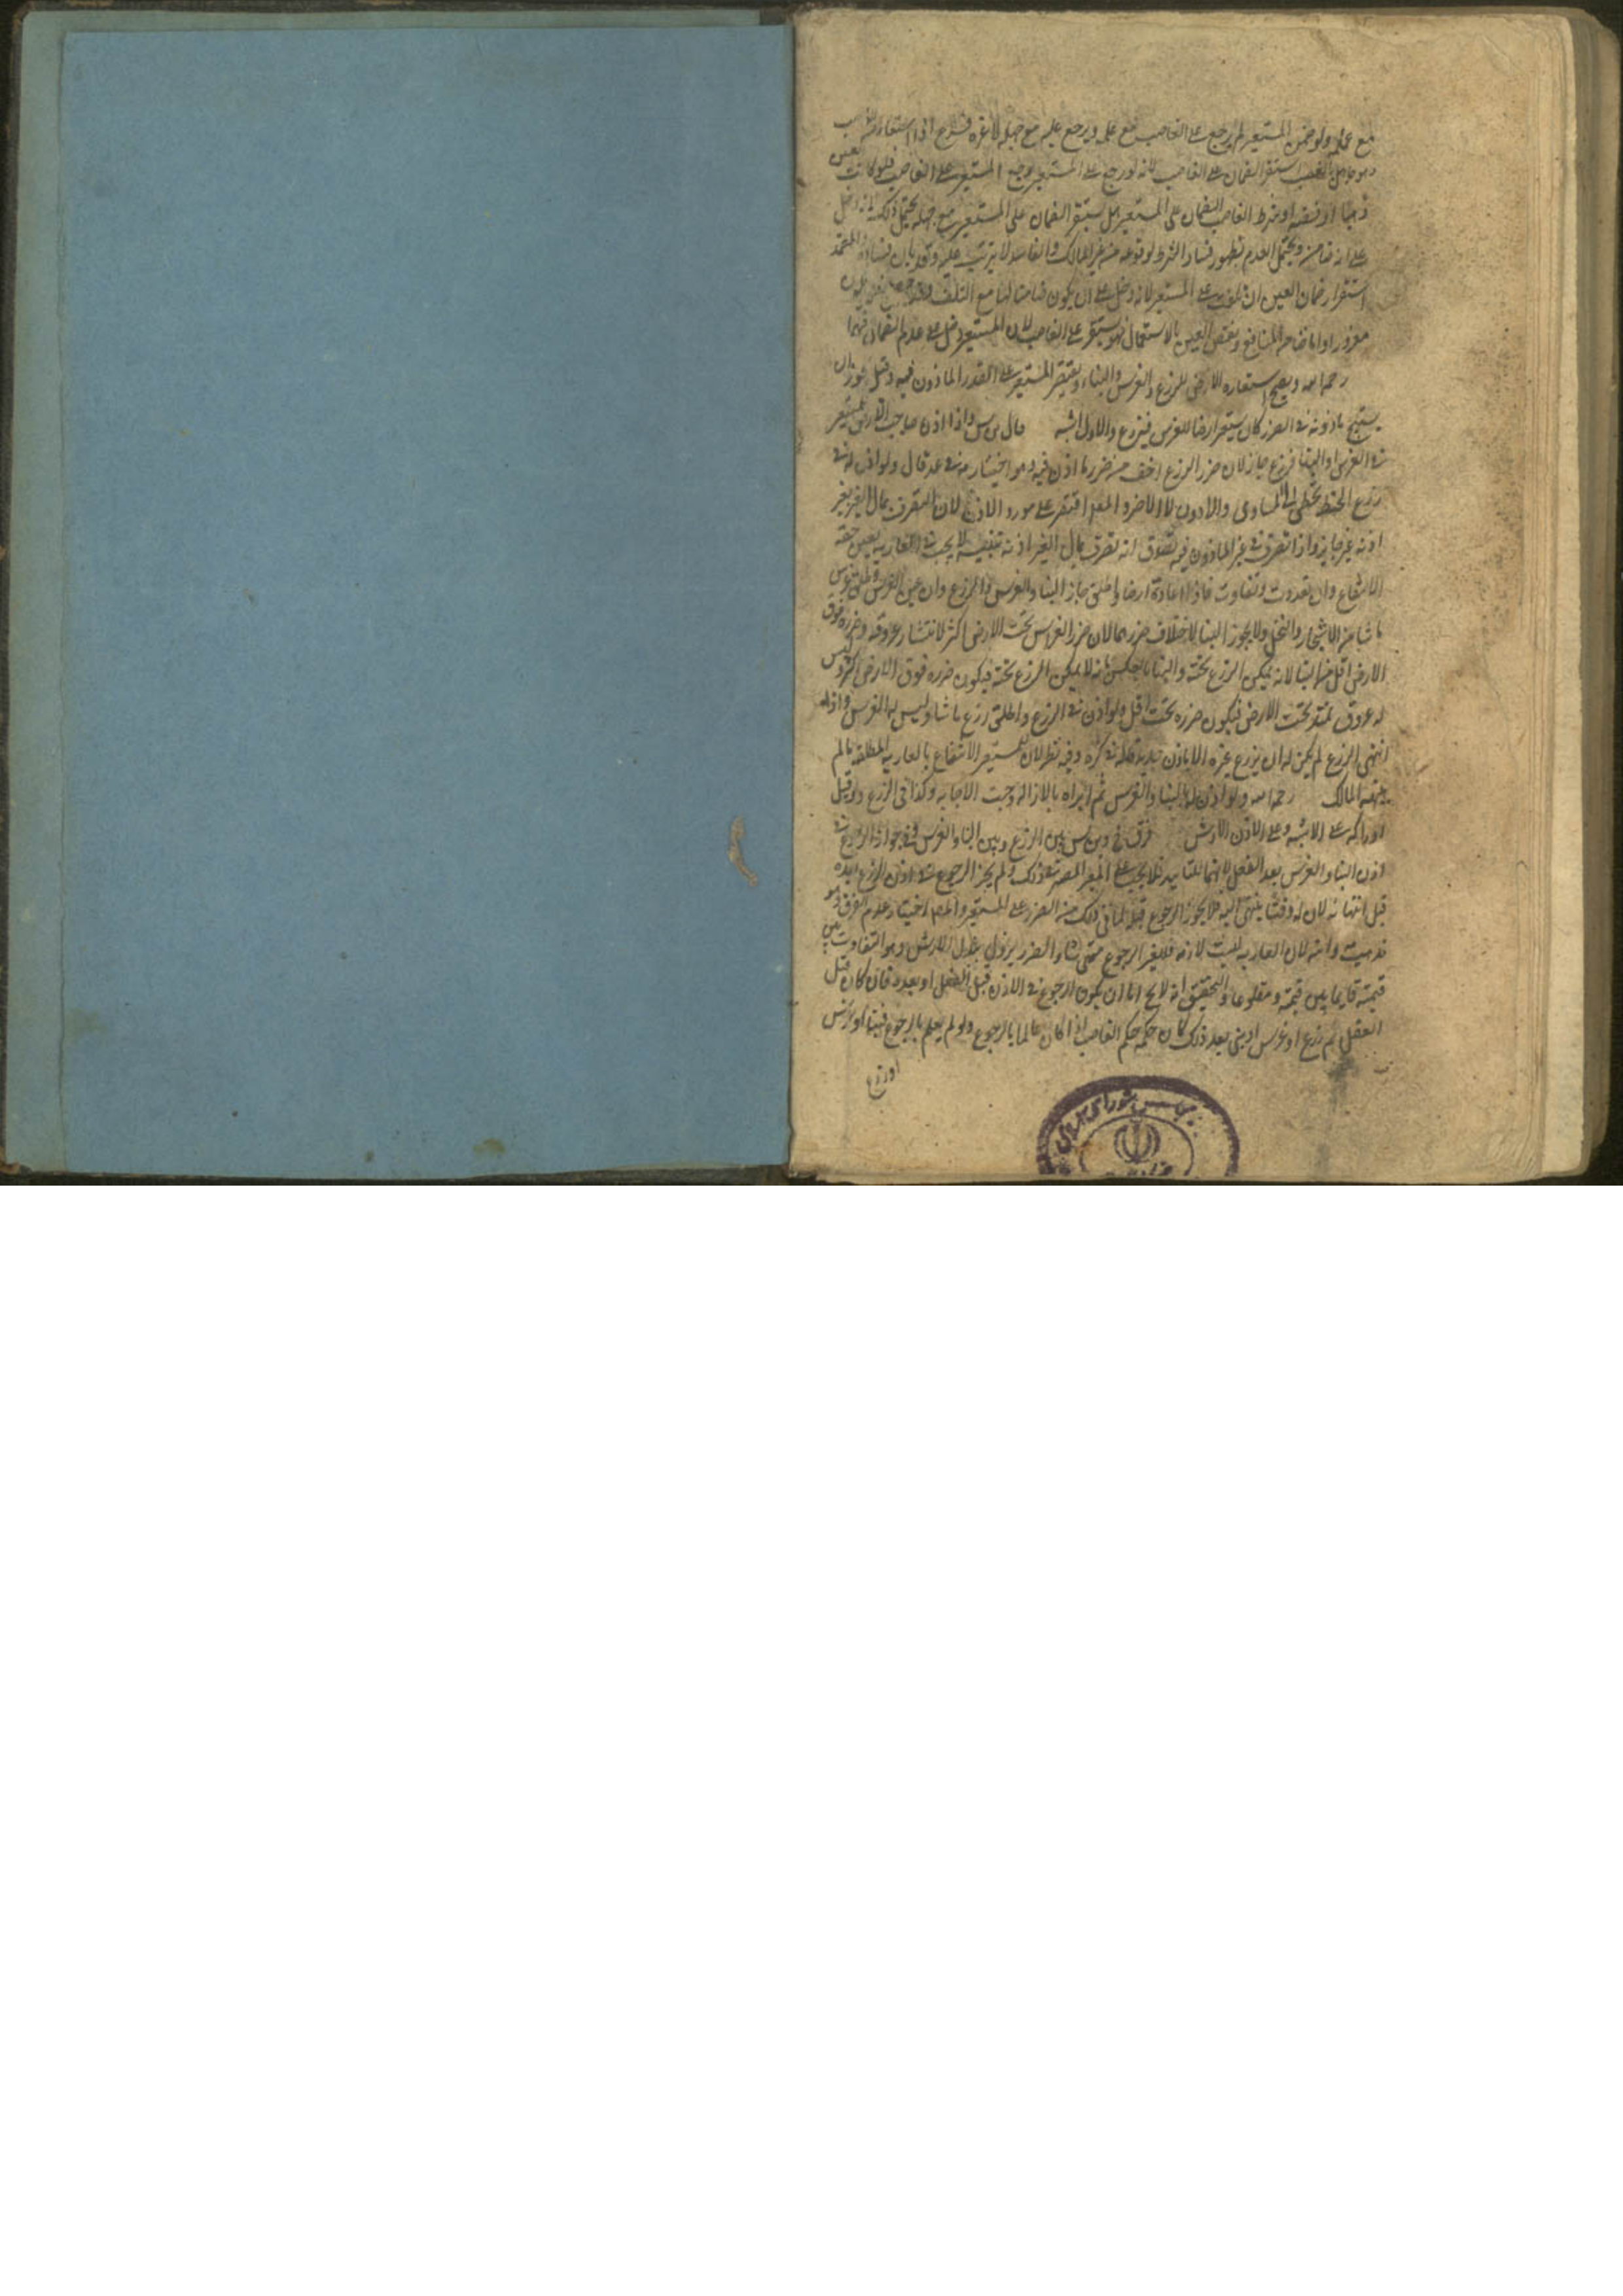 مع علمه ولو ضمن المستعير لم يرجع على الغاصب مع علمه ويرجع عليه مع جهله لانه غره فرع اذا استعار من الغاصب
وهو جاهل بالغصب استقر الضمان على الغاصب لانه لو رجع على المستعير لرجع المستعير على الغاصب فلو كانت العين
ذهبا او فضة او شرط الغاصب الضمان على المستعير هل يستقر الضمان على المستعير مع جهله يحتمل ذلك لانه دخل
على انه ضامن ويحتمل العدم لظهور فساد الشرط لوقوعه من غير المالك والفاسد لا يترتب عليه وقد بان فساده المعتمد
استقرار ضمان العين ان تلفت على المستعير لانه دخل على ان يكون ضامنا لها مع التلف فلا
مغرورا واما ضمان المنافع ونقص العين بالاستعمال فهو يستقر على الغاصب لان المستعير دخل على عدم الضمان فيهما
رحمه الله ويصح استعارة الارض للزرع والغرس والبناء ويقتصر المستعير على القدر الماذون فيه وقيل يجوز ان
يستبيح ما دونه في الضرر كان يستعير ارضا للغرس فيزرع والاول اشبه قال اذا اذن صاحب الارض للمستعير
في الغرس او البناء فزرع جاز لان ضرر الزرع اخف من ضرر ما اذن فيه وهو اختيار قال ولو اذن له في
زرع الحنطة تخطى الى المساوي والادون لا الاضر و اقتصر على مورد الاذن لان التصرف بمال الغير بغير
اذنه غير جايز واذا تصرف في غير الماذون فيه يصدق انه تصرف بمال الغير بغير اذنه تنبيه لا يجب في العارية تعيين جهة
الانتفاع وان تعددت وتفاوت فاذا اعاره ارضا واطلق جاز البناء والغرس والزرع وان عين الغرس واطلق غرس
ما شاء من الاشجار والنخل ولا يجوز البناء لاختلاف ضررهما لان ضرر الغراس تحت الارض اكثر لانتشار عروقه وضرره فوق
الارض اقل من البناء لانه يمكن الزرع تحته والبناء بالعكس لانه لا يمكن الزرع تحته فيكون ضرره فوق الارض اكثر وليس
له عروق تمتد تحت الارض فيكون ضرره تحت اقل ولو اذن في الزرع واطلق زرع ما شاء وليس له الغرس واذا
انتهى الزرع لم يكن له ان يزرع غيره الا باذن جديد قاله في كره وفيه نظر لان للمستعير الانتفاع بالعارية المطلقة ما لم
ينهه المالك رحمه الله ولو اذن له بالبناء والغرس ثم امره بالازالة وجبت الاجابة وكذا في الزرع ولو قبل
ادراكه على الاشبه وعلى الاذن الارش فرق بين الزرع وبين البناء والغرس في جواز الرجوع في
اذن البناء والغرس بعد الفعل لانهما للتابيد فلا يجب على المعير الصبر في ذلك ولم يجز الرجوع في اذن الزرع بعده
قبل انتهائه لان له وقتا ينتهي اليه فلا يجوز الرجوع قبله لما في ذلك من الضرر على المستعير و اختيار عدم الفرق وهو
لان العارية ليست لازمة فللمعير الرجوع متى شاء والضرر يزول ببذل الارش وهو التفاوت بين
قيمته قايما وبين قيمته مقلوعا والتحقيق انه لا يخ اما ان يكون الرجوع في الاذن قبل الفعل او بعده فان كان قبل
الفعل ثم زرع او غرس او بنى بعد ذلك كان حكمه حكم الغاصب اذا كان عالما بالرجوع ولو لم يعلم بالرجوع فبنا او غرس
او زرع
مجلس شورای اسلامی